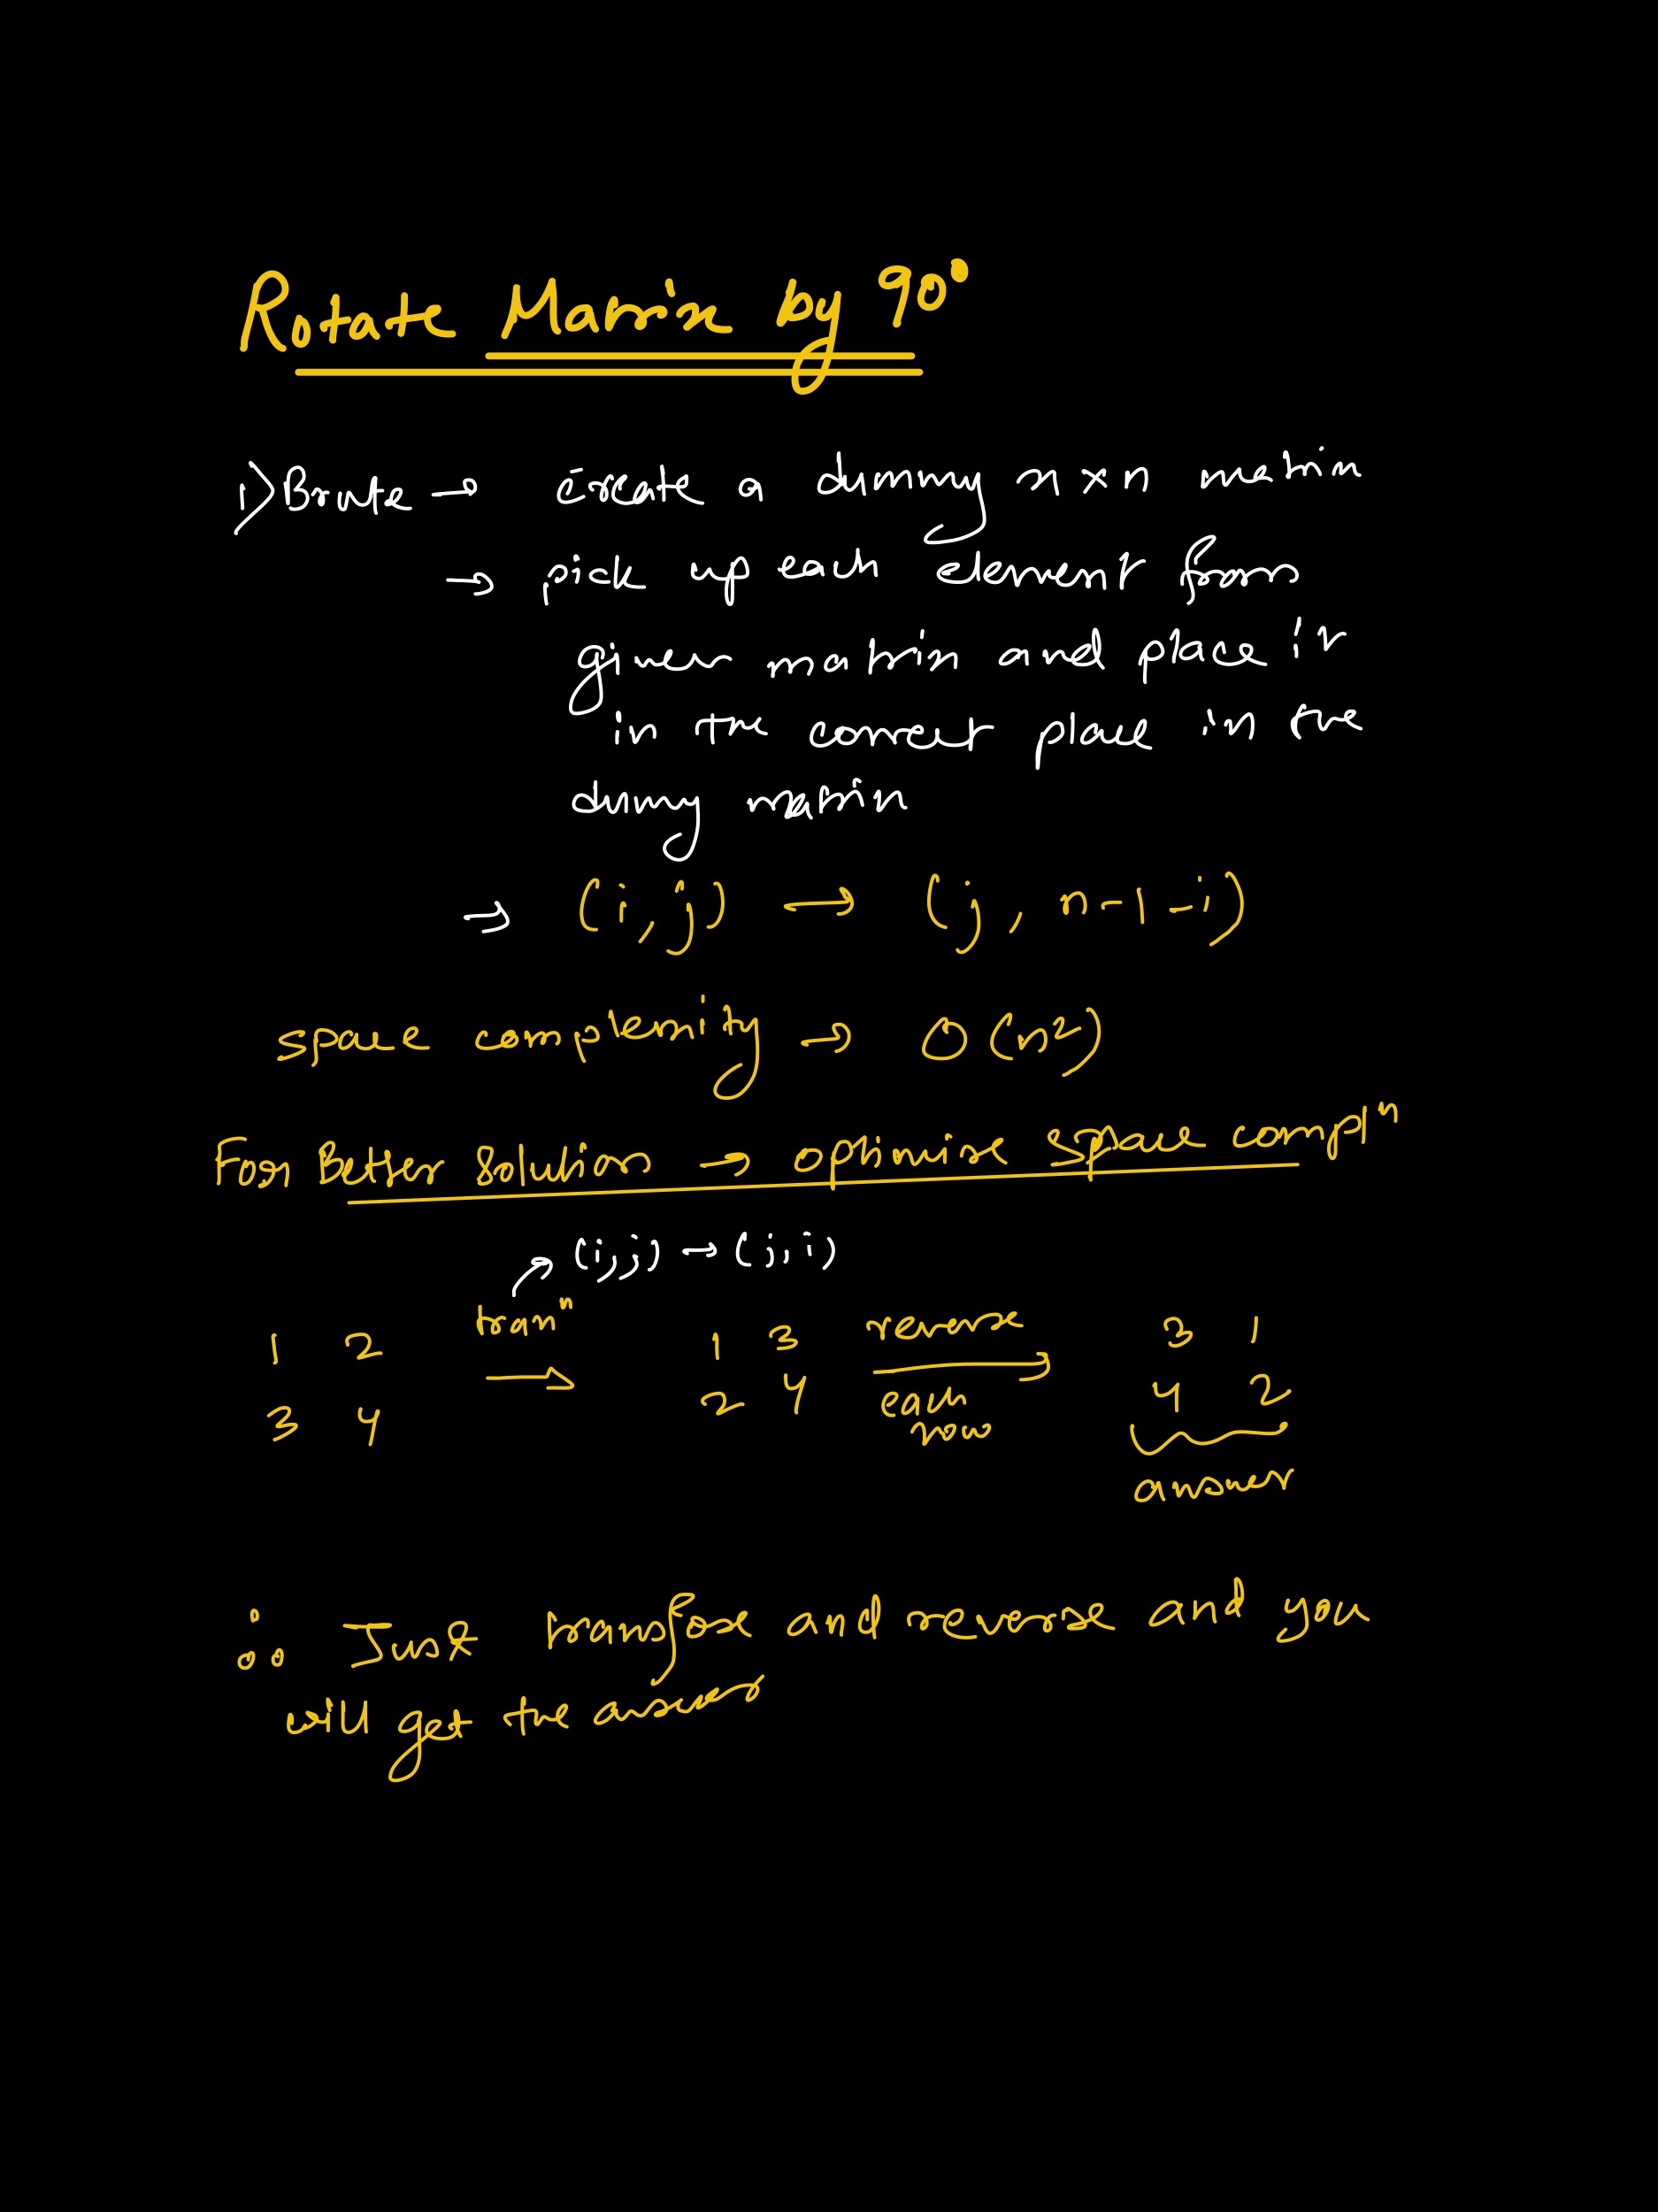 Rotate Marix by 90°
1) Brute → create a dummy n x n matrix
→ pick up each element from
given matrix and place it
in the correct place in the
dumy matrix
→ (i, j) → (j, n-1-i)
space complexity → O(n²)
For Better Solution → optimise space complⁿ
→ (i,j) → (j,i)
1 2 tranⁿ 1 3 reverse 3 1
3 4 → 2 4 each row → 4 2
answer
∴ Just transpose and reverse and you
will get the answer